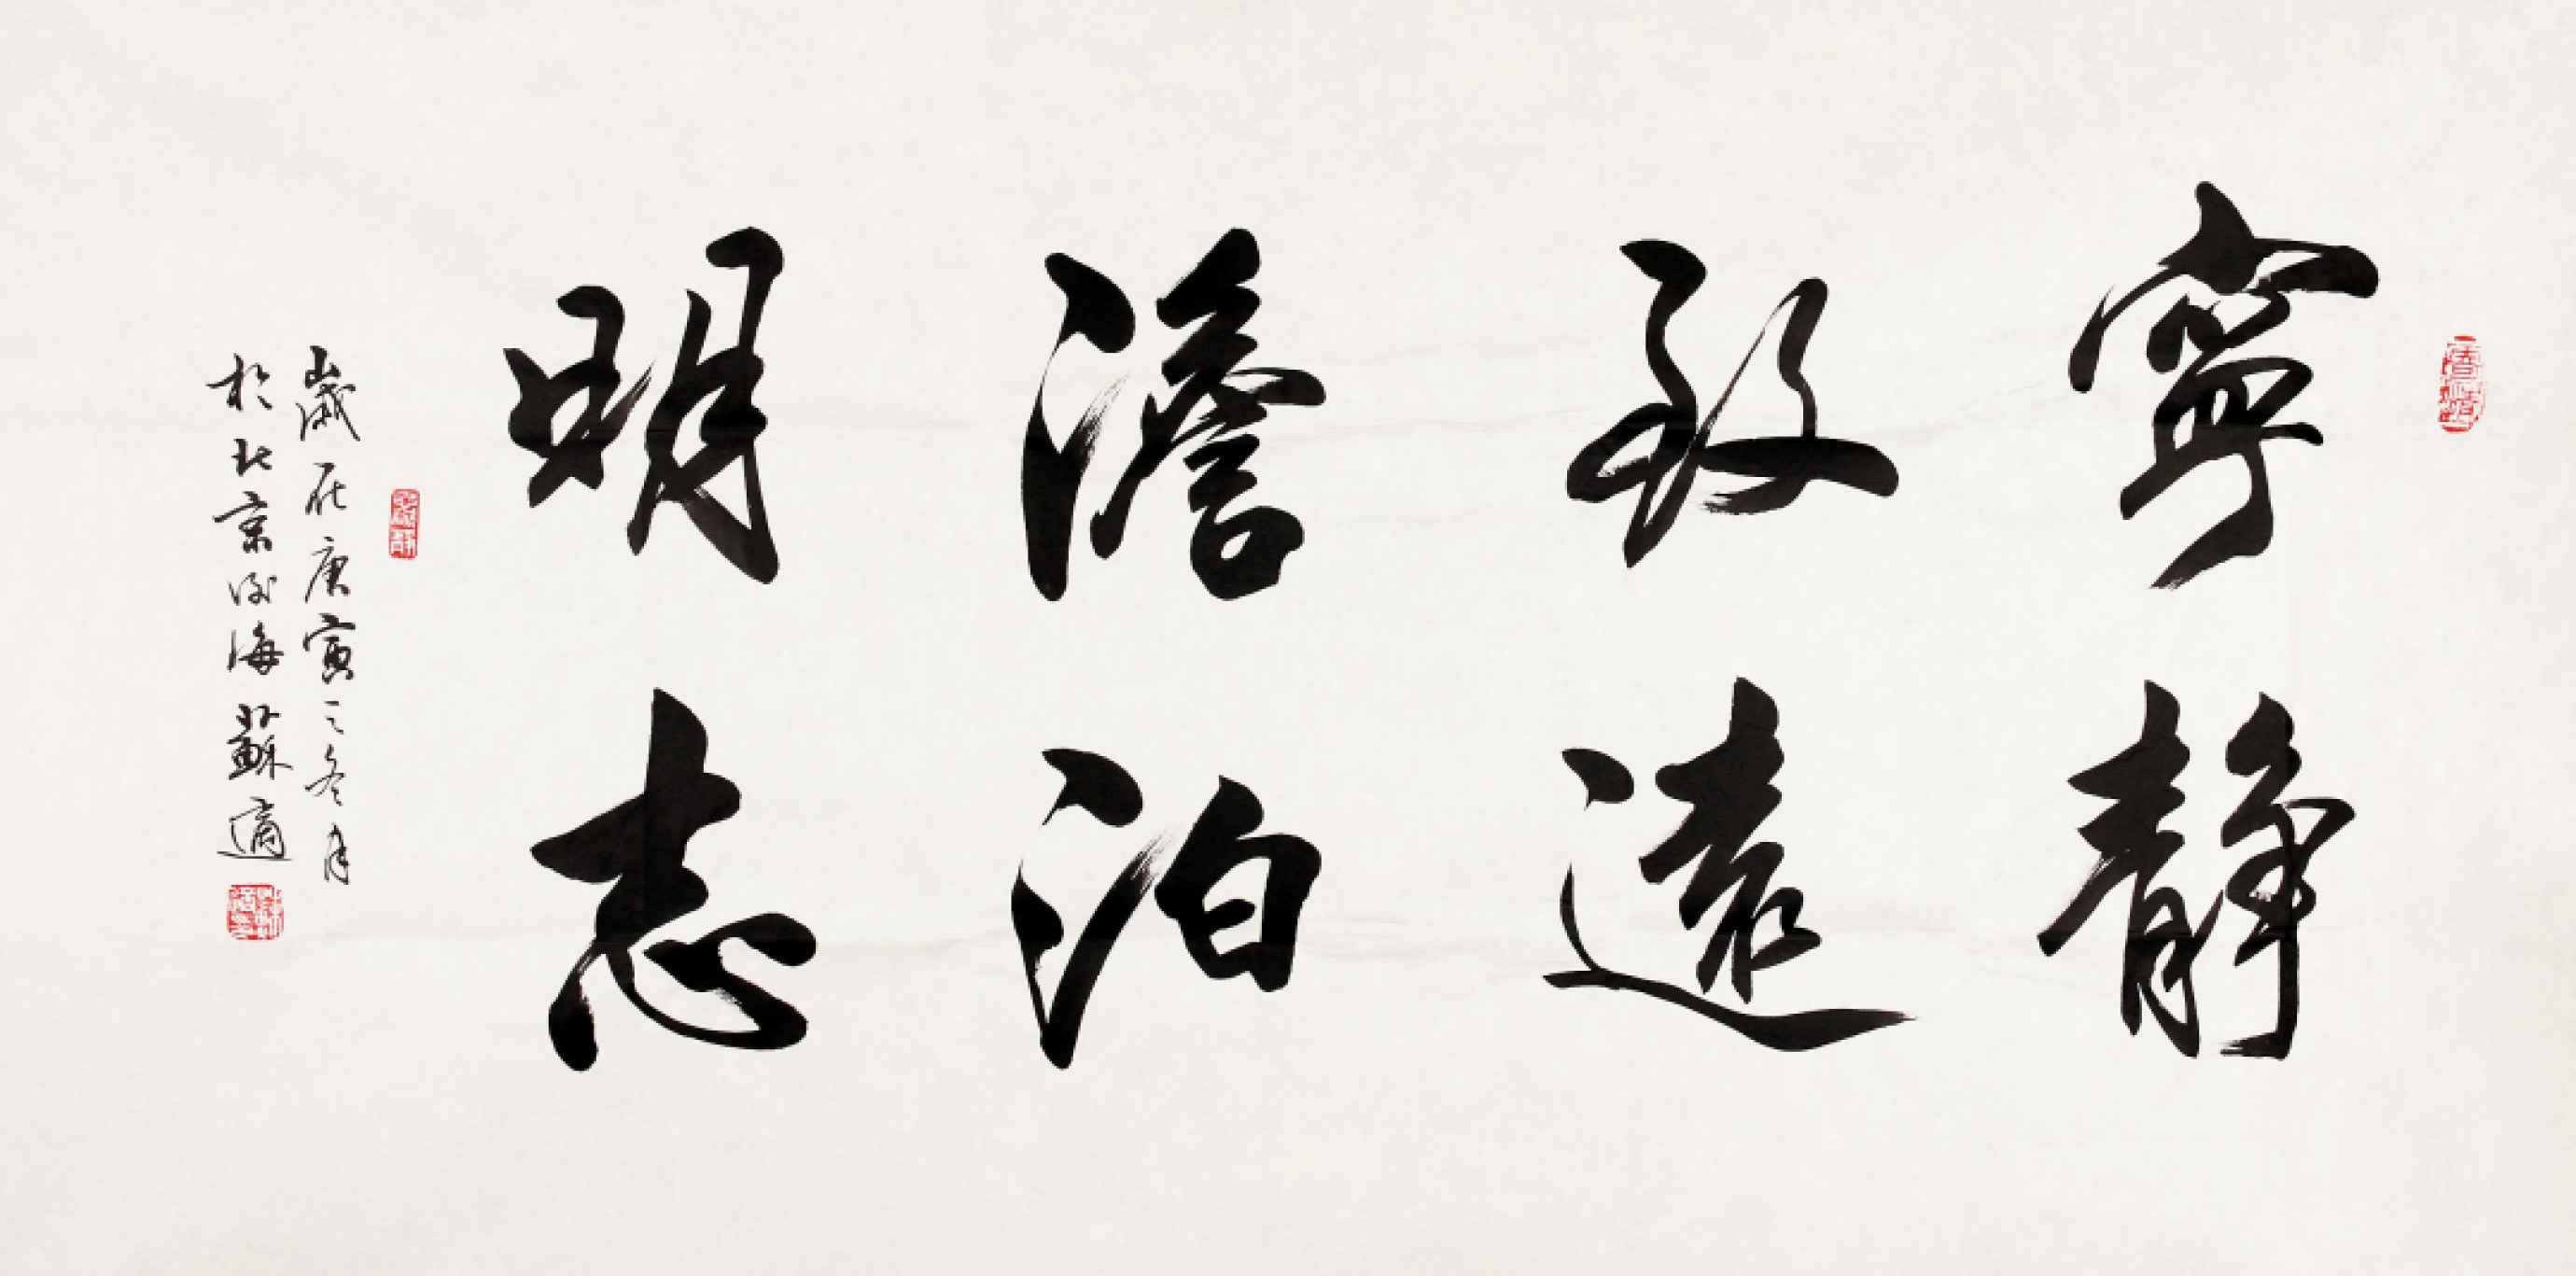 寧靜
致遠
澹泊
明志
歲在庚寅之冬月
於北京後海蘇適